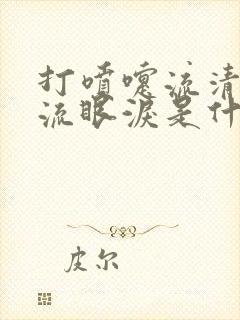 打喷嚏流清
流眼泪是什
皮尔